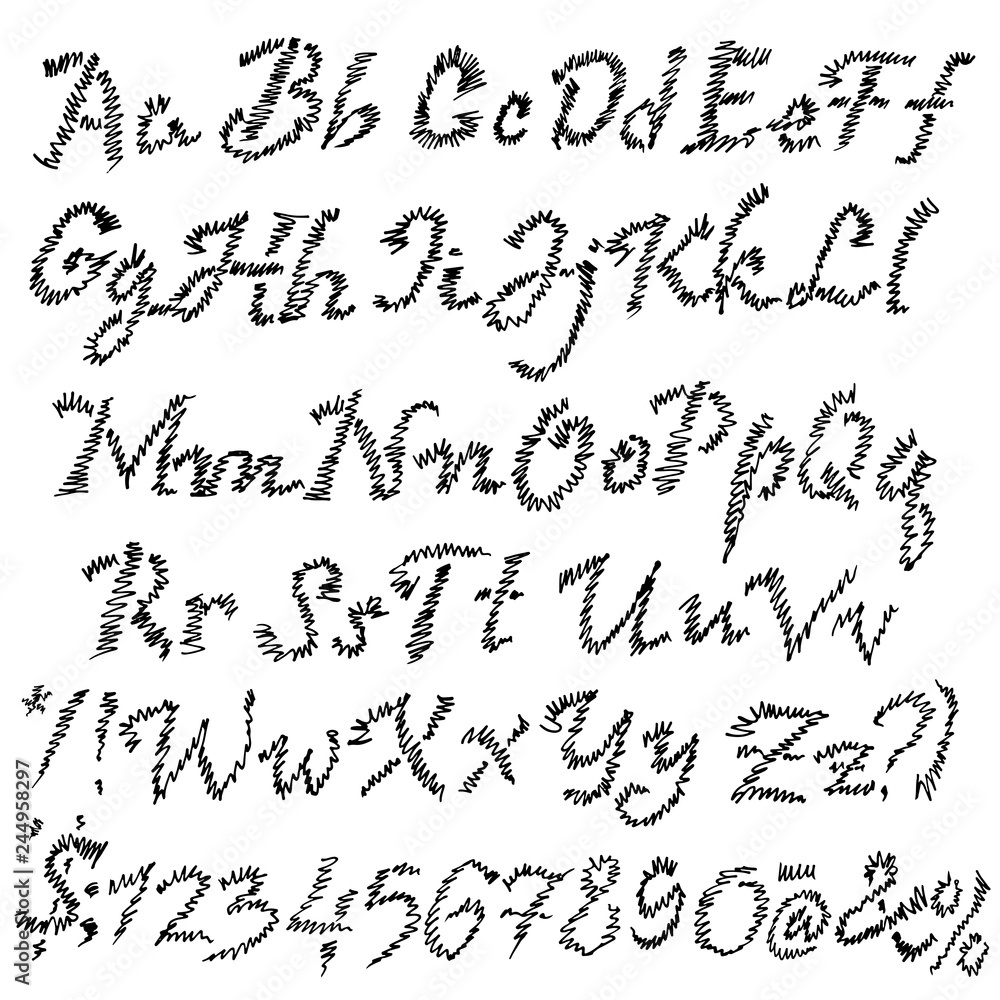 Aa Bb Cc Dd Ee Ff
Gg Hh Ii Jj Kk Ll
Mm Nn Oo Pp Qq
Rr Ss Tt Uu Vv
*/!"Ww Xx Yy Zz?)
$:1234567890@&%
Adobe Stock | #244958297